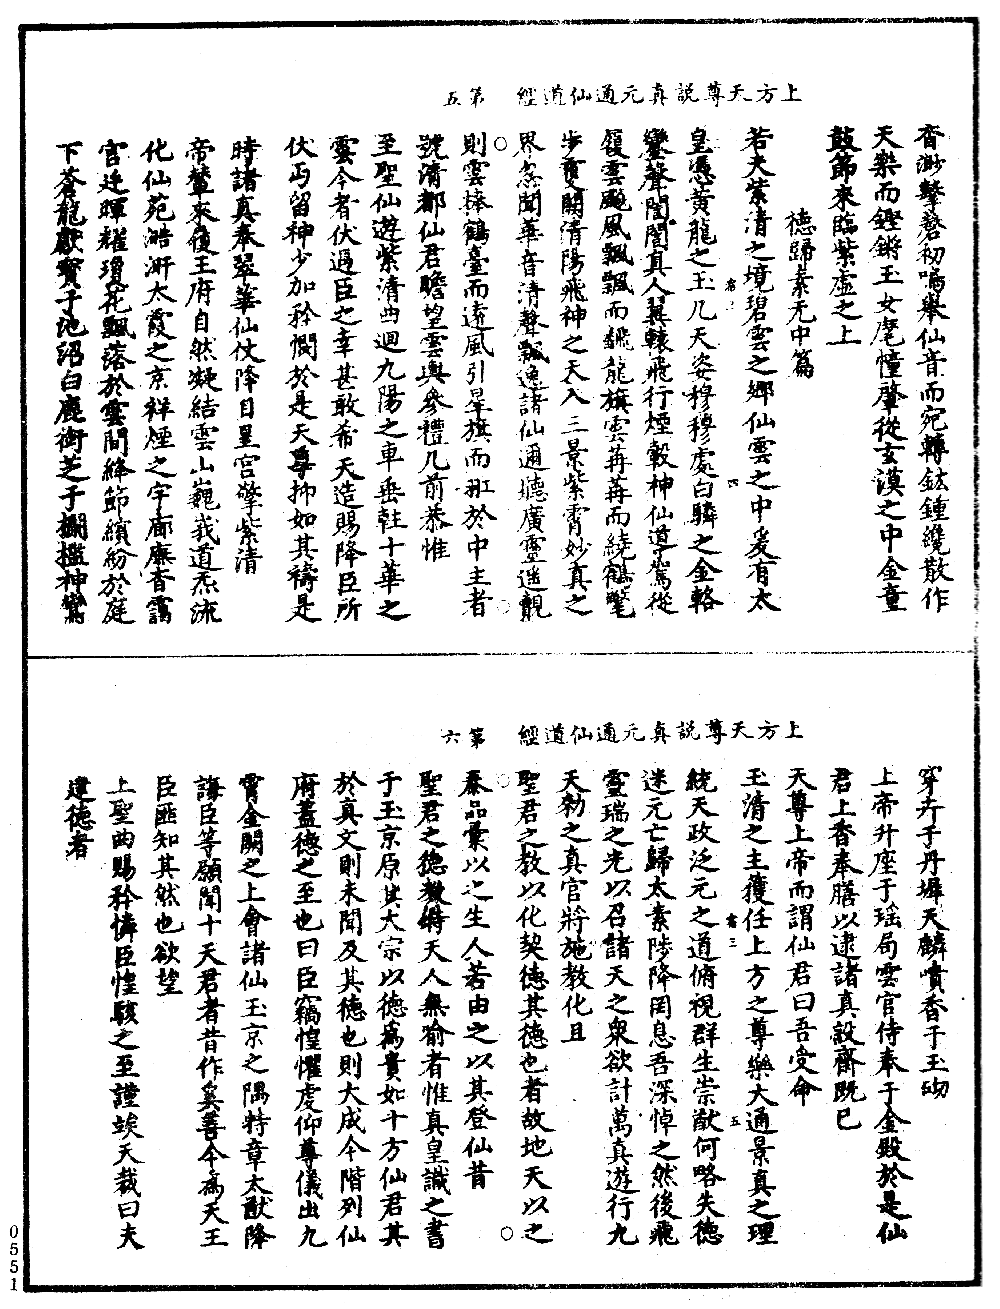 上方天尊說真元通仙道經　第五
香渺擊磬初鳴舉仙音而宛轉鈸鍾纔散作
天樂而鏗鏘玉女麾幢肇從玄漠之中金童
鼓節來臨紫虛之上
德歸素无中篇
若夫紫清之境碧雲之鄉仙雲之中爰有太
皇憑黃龍之玉几天姿穆穆處白驎之金輅
鸞聲誾誾真人翼轅飛行煙轂神仙道駕從
履雲颷風飄飄而飜龍旗雲苒苒而繞鶴氅
步雙闕清陽飛神之天入三景紫霄妙真之
界忽聞華音清聲飄逸諸仙邇聽廣靈遙覩
則雲捧鶴臺而遠風引旱旗而亚於中主者
號清都仙君瞻望雲輿參禮几前恭惟
至聖仙遊紫清曲迴九陽之車垂駐十華之
雲今者伏過臣之幸甚敢希天造賜降臣所
伏丐留神少加矜憫於是天尊抑如其禱是
時諸真奉翠華仙仗降目星宮擎紫清
帝輦來復王府自然凝結雲山巍峩道炁流
化仙苑澔汗太霞之京祥煙之宇廊廡香靄
宮廷暉耀瓊花飄落於雲間絳節繽紛於庭
下蒼龍獻寶于地沼白鹿銜芝于攔檻神鸞
上方天尊說真元通仙道經　第六
穿卉于丹墀天麟噴香于玉砌
上帝升座于瑶局雲官侍奉于金殿於是仙
君上香奉膳以逮諸真設齋既已
天尊上帝而謂仙君曰吾受命
玉清之主獲任上方之尊樂大通景真之理
統天政泛元之道俯視群生崇猷何略失德
迷元亡歸太素陟降罔息吾深悼之然後飛
靈瑞之光以召諸天之衆欲計萬真遊行九
天勑之真官將施教化且
聖君之教以化契德其德也者故地天以之
泰品彙以之生人若由之以其登仙昔
聖君之德數術天人無喻者惟真皇識之書
于玉京原其大宗以德爲貴如十方仙君其
於真文則未聞及其德也則大成今階列仙
府蓋德之至也曰臣竊惶懼虔仰尊儀出九
霄金闕之上會諸仙玉京之隅特章太猷降
誨臣等願聞十天君者昔作奚善今爲天王
臣匪知其然也欲望
上聖曲賜矜憐臣惶駭之至謹竢天裁曰夫
建德者
右二
四
右三
五
0551